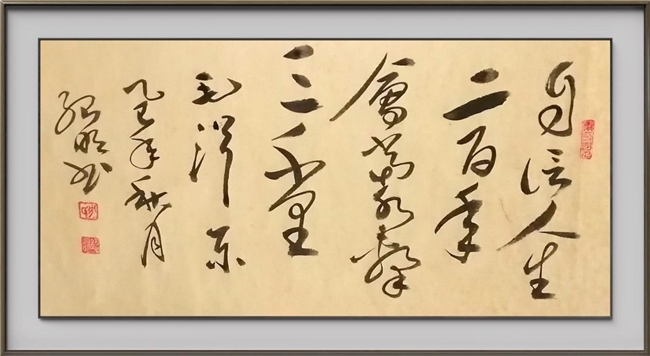 自信人生
二百年
會當水擊
三千里
毛澤东
年秋月